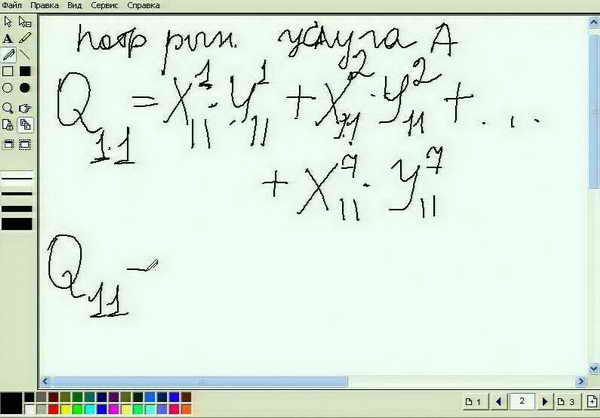 Файл Правка Вид Сервис Справка
потр рын. услуга А
Q₁.₁ = X¹₁₁ · Y¹₁₁ + X²₁₁ · Y²₁₁ + ...
+ X⁷₁₁ · Y⁷₁₁
Q₁₁ –
1 2 3